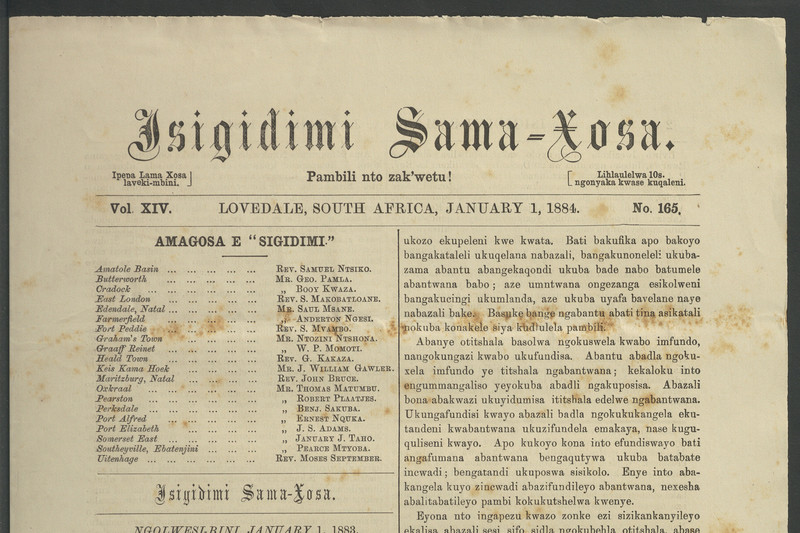 Isigidimi Sama-Xosa.
Ipepa Lama Xosa laveki-mbini.
Pambili nto zak'wetu!
Lihlaulelwa 10s. ngonyaka kwase kuqaleni.
Vol. XIV. LOVEDALE, SOUTH AFRICA, JANUARY 1, 1884. No. 165.
AMAGOSA E "SIGIDIMI."
Amatole Basin ... ... ... ... ... REV. SAMUEL NTSIKO.
Butterworth ... ... ... ... ... MR. GEO. PAMLA.
Cradock ... ... ... ... ... ... „ BOOY KWAZA.
East London ... ... ... ... ... REV. S. MAKOBATLOANE.
Edendale, Natal ... ... ... ... ... MR. SAUL MSANE.
Farmerfield ... ... ... ... ... „ ANDERTON NGESI.
Fort Peddie ... ... ... ... ... REV. S. MVAMBO.
Graham's Town ... ... ... ... ... MR. NTOZINI NTSHONA.
Graaff Reinet ... ... ... ... ... „ W. P. MOMOTI.
Heald Town ... ... ... ... ... REV. G. KAKAZA.
Keis Kama Hoek ... ... ... ... ... MR. J. WILLIAM GAWLER.
Maritzburg, Natal ... ... ... ... ... REV. JOHN BRUCE.
Oxkraal ... ... ... ... ... MR. THOMAS MATUMBU.
Pearston ... ... ... ... ... „ ROBERT PLAATJES.
Perksdale ... ... ... ... ... „ BENJ. SAKUBA.
Port Alfred ... ... ... ... ... „ ERNEST NQUKA.
Port Elizabeth ... ... ... ... ... „ J. S. ADAMS.
Somerset East ... ... ... ... ... „ JANUARY J. TAHO.
Southeyville, Ebatenjini ... ... ... „ PEARCE MTYOBA.
Uitenhage ... ... ... ... ... ... REV. MOSES SEPTEMBER.
Isigidimi Sama-Xosa.
NGOLWESI-BINI, JANUARY 1, 1883.
ukozo ekupeleni kwe kwata. Bati bakufika apo bakoyo
bangakataleli ukuqelana nabazali, bangakunoneleli ukuba-
zama abantu abangekaqondi ukuba bade nabo batumele
abantwana babo; aze umntwana ongezanga esikolweni
bangakucingi ukumlanda, aze ukuba uyafa bavelane naye
nabazali bake. Basuke bange ngabantu abati tina asikatali
nokuba konakele siya kudlulela pambili.
Abanye otitshala basolwa ngokuswela kwabo imfundo,
nangokungazi kwabo ukufundisa. Abantu abadla ngoku-
xela imfundo ye titshala ngabantwana; kekaloku into
engummangaliso yeyokuba abadli ngakuposisa. Abazali
bona abakwazi ukuyidumisa ititshala edelwe ngabantwana.
Ukungafundisi kwayo abazali badla ngokukukangela eku-
tandeni kwabantwana ukuzifundela emakaya, nase kugu-
quliseni kwayo. Apo kukoyo kona into efundiswayo bati
angafumana abantwana bengaqutywa ukuba batabate
incwadi; bengatandi ukuposwa sisikolo. Enye into aba-
kangela kuyo zincwadi abazifundileyo abantwana, nexesha
abalitabatileyo pambi kokukutshelwa kwenye.
Eyona nto ingapezu kwazo zonke ezi sizikankanyileyo
ekalisa abazali sesi sifo sidla ngokubehla otitshala, abase